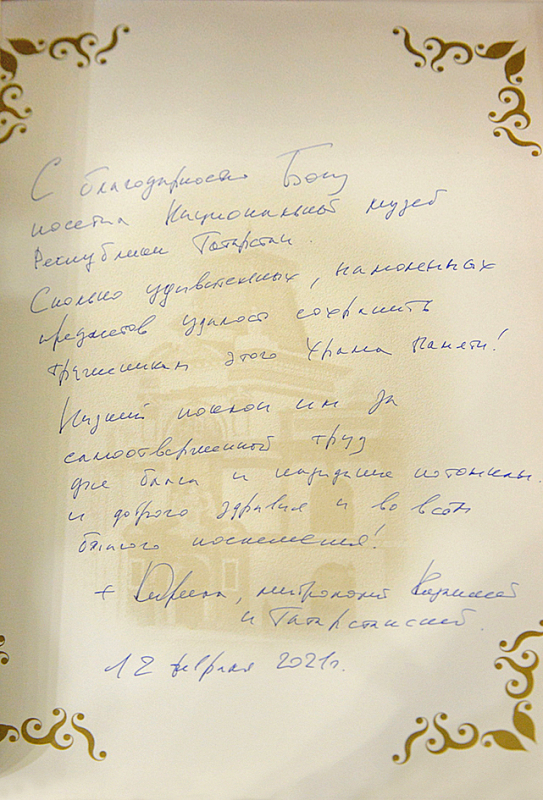 С благодарностью Богу
посетил Национальный музей
Республики Татарстан.
Сколько удивительных, намоленных
предметов удалось сохранить
труженикам этого Храма Памяти!
Низкий поклон им за
самоотверженный труд
для блага и
и доброго здравия и во всём
Божьего
+ Кирилл, митрополит Казанский
и Татарстанский.
12 февраля 2021г.